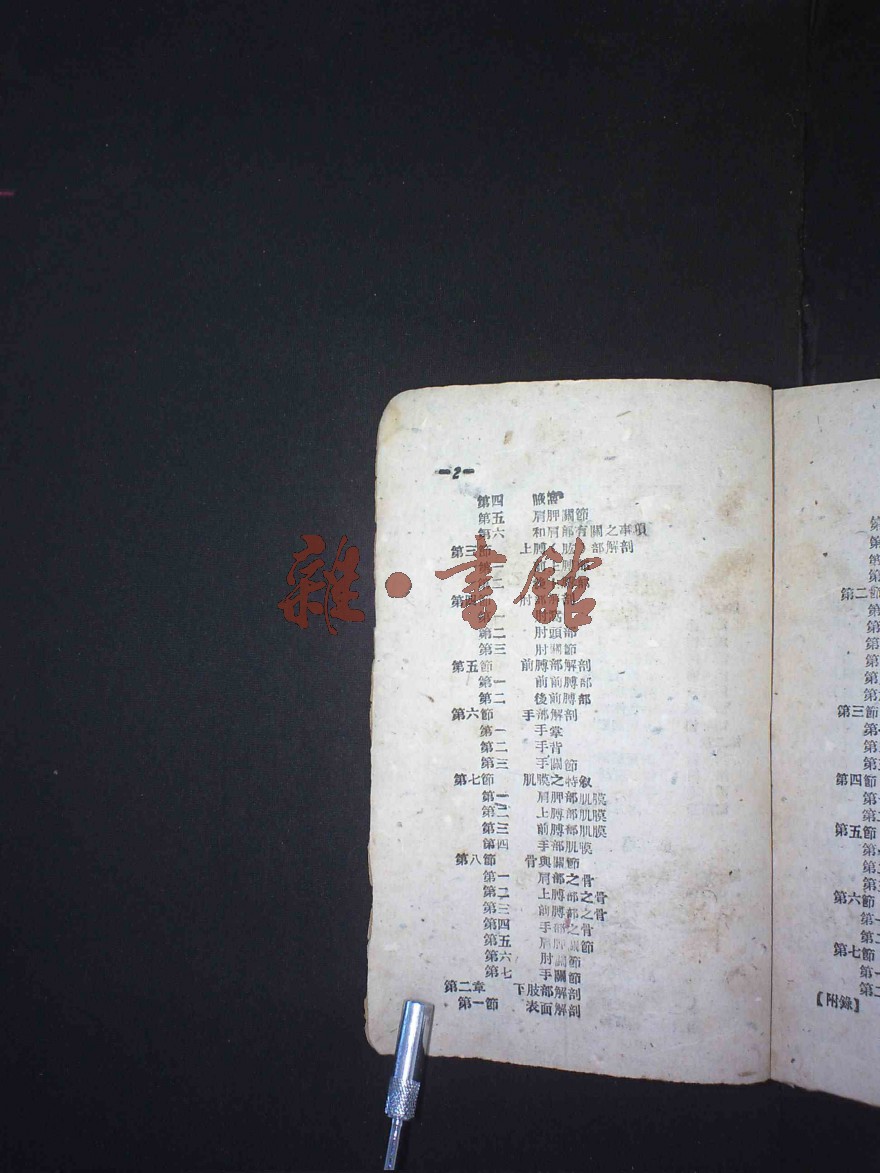 -2-
第四 腋窩
第五 肩胛關節
第六 和肩部有關之事項
第三節 上膊(肱)部解剖
第一 前上膊部
第二 後上膊部
第四節 肘部解剖
第一 肘窩
第二 肘頭部
第三 肘關節
第五節 前膊部解剖
第一 前前膊部
第二 後前膊部
第六節 手部解剖
第一 手掌
第二 手背
第三 手關節
第七節 肌膜之特敘
第一 肩胛部肌膜
第二 上膊部肌膜
第三 前膊部肌膜
第四 手部肌膜
第八節 骨與關節
第一 肩部之骨
第二 上膊部之骨
第三 前膊部之骨
第四 手部之骨
第五 肩胛關節
第六 肘關節
第七 手關節
第二章 下肢部解剖
第一節 表面解剖
雜·書館
第二節
第三節
第四節
第五節
第六節
第七節
第一
第二
【附錄】